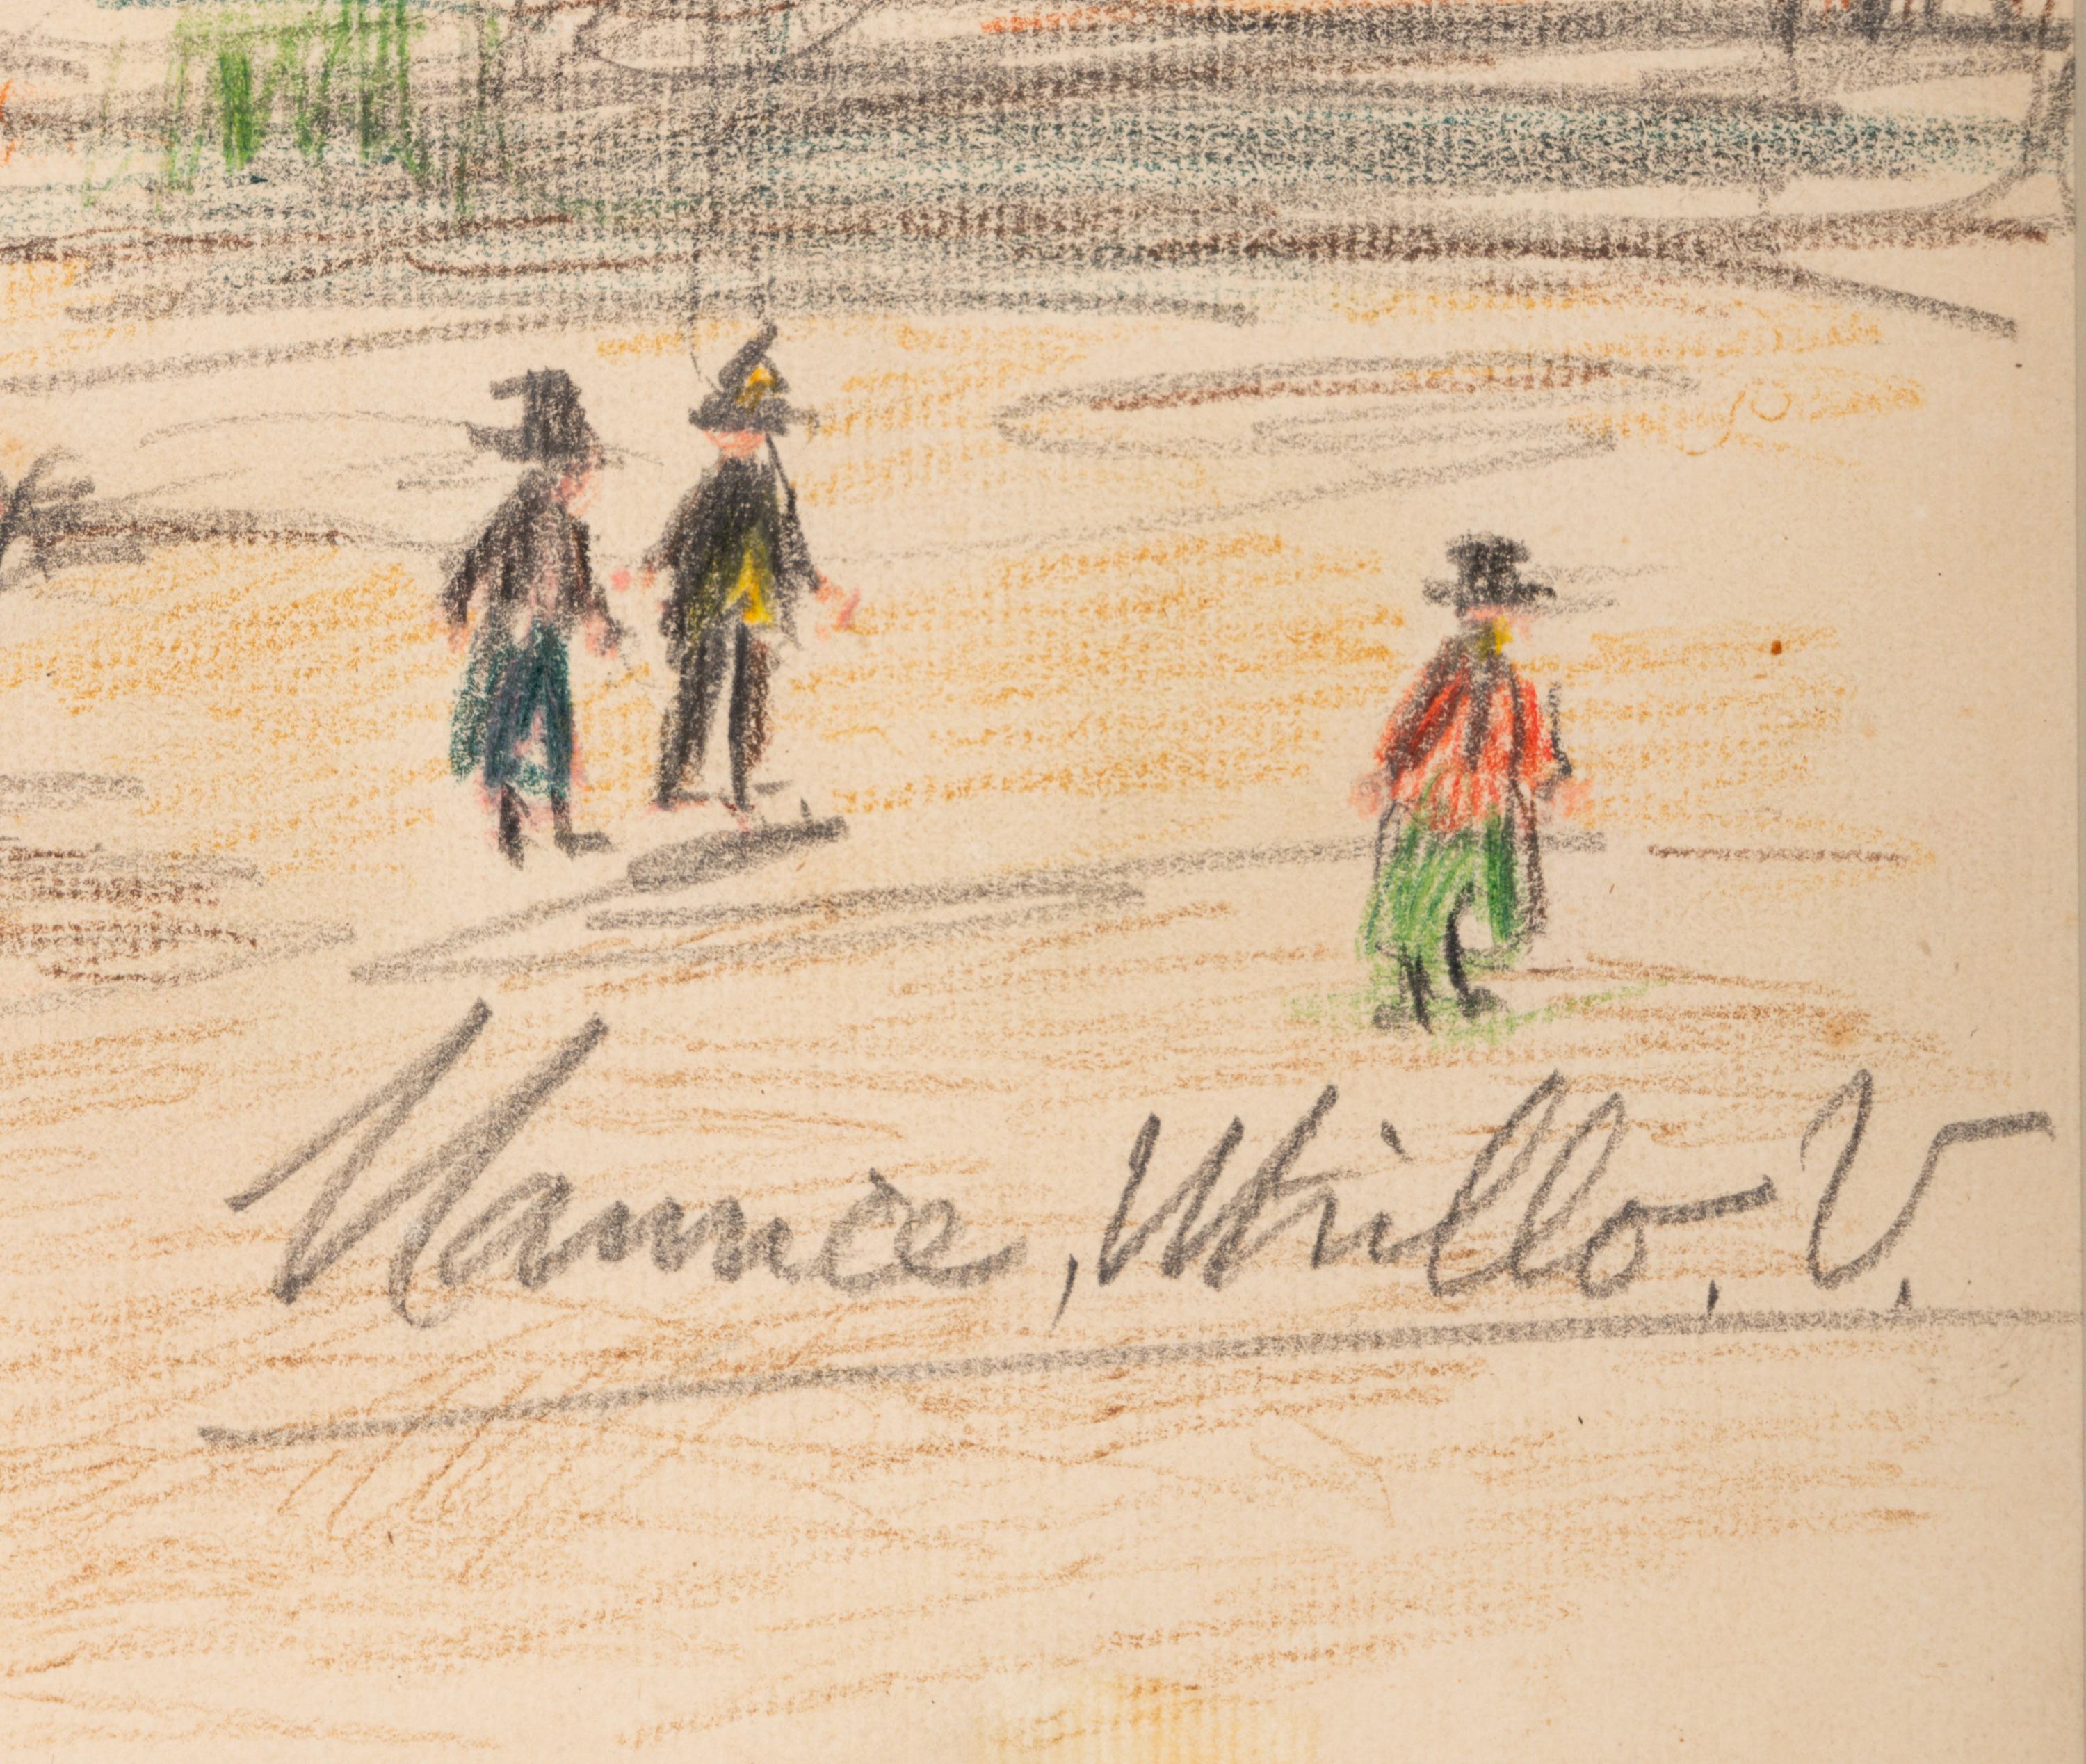 Maurice, Utrillo, V.